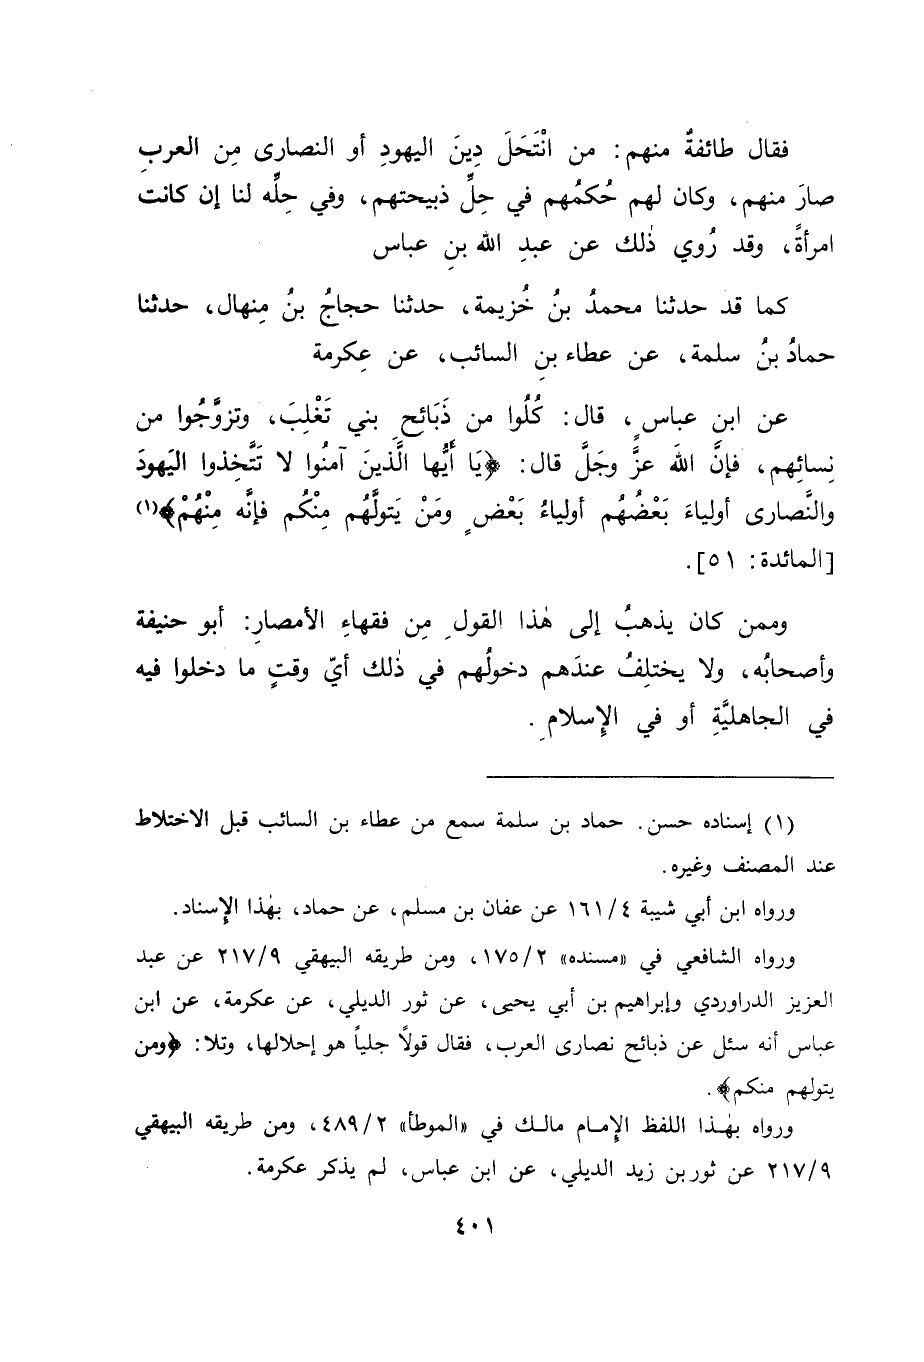 فقال طائفةٌ منهم: من انْتَحَلَ دِينَ اليهودِ أو النصارى مِن العربِ
صارَ منهم، وكان لهم حُكمُهم في حِلِّ ذبيحتهم، وفي حِلِّه لنا إن كانت
امرأةً، وقد رُوي ذٰلك عن عبدِ الله بنِ عباس
كما قد حدثنا محمدُ بنُ خُزيمة، حدثنا حجاجُ بنُ مِنهال، حدثنا
حمادُ بنُ سلمة، عن عطاء بنِ السائب، عن عِكرمة
عن ابنِ عباسٍ، قال: كُلُوا من ذَبَائحِ بني تَغْلِبَ، وتزوَّجُوا من
نِسائِهم، فإنَّ اللهَ عزَّ وجَلَّ قال: ﴿يَا أَيُّها الَّذينَ آمنُوا لا تَتَّخِذوا اليَهودَ
والنَّصارى أولياءَ بَعْضُهُم أولياءُ بَعْضٍ ومَنْ يَتولَّهُم مِنْكُم فإنَّه مِنْهُمْ﴾(١)
[المائدة: ٥١].
وممن كان يذهبُ إلى هٰذا القولِ مِن فقهاءِ الأمصارِ: أبو حنيفة
وأصحابُه، ولا يختلِفُ عندَهم دخولُهم في ذٰلك أيّ وقتٍ ما دخلوا فيه
في الجاهليَّةِ أو في الإِسلامِ.
(١) إسناده حسن. حماد بن سلمة سمع من عطاء بن السائب قبل الاختلاط
عند المصنف وغيره.
ورواه ابن أبي شيبة ١٦١/٤ عن عفان بن مسلم، عن حماد، بهٰذا الإِسناد.
ورواه الشافعي في «مسنده» ١٧٥/٢، ومن طريقه البيهقي ٢١٧/٩ عن عبد
العزيز الدراوردي وإبراهيم بن أبي يحيى، عن ثور الديلي، عن عكرمة، عن ابن
عباس أنه سئل عن ذبائح نصارى العرب، فقال قولاً جلياً هو إحلالها، وتلا: ﴿ومن
يتولهم منكم﴾.
ورواه بهٰذا اللفظ الإِمام مالك في «الموطأ» ٤٨٩/٢، ومن طريقه البيهقي
٢١٧/٩ عن ثور بن زيد الديلي، عن ابن عباس، لم يذكر عكرمة.
٤٠١